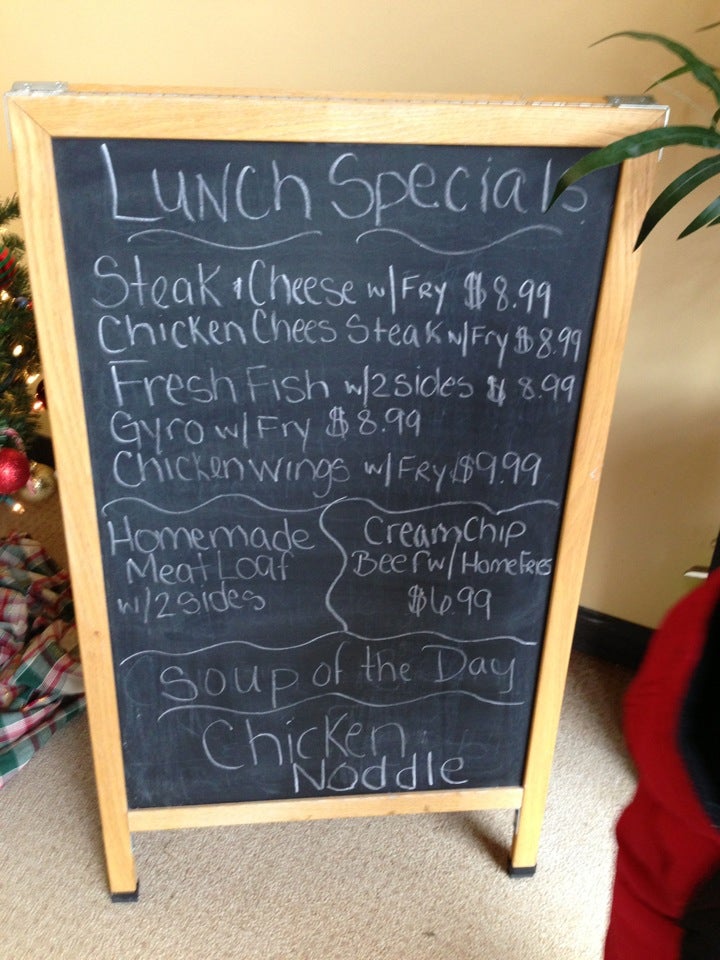 Lunch Specials
Steak & Cheese w/ Fry $8.99
Chicken Chees Steak w/ Fry $8.99
Fresh Fish w/ 2 sides $8.99
Gyro w/ Fry $8.99
Chicken wings w/ Fry $9.99
Homemade
Meat Loaf
w/ 2 sides
Cream Chip
Beef w/ Home Fees
$6.99
Soup of the Day
Chicken
Noddle